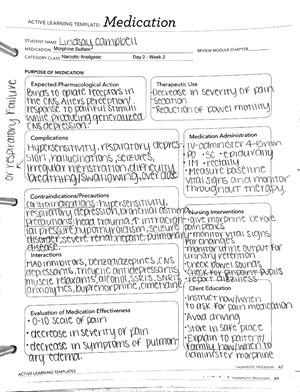 ACTIVE LEARNING TEMPLATE: Medication
STUDENT NAME Lindsay Campbell
MEDICATION Morphine Sulfate
REVIEW MODULE CHAPTER
CATEGORY CLASS Narcotic Analgesic Day 2 - Week 2
PURPOSE OF MEDICATION
Expected Pharmacological Action
Binds to opiate receptors in
the CNS. Alters perception/
response to painful stimuli
while producing generalized
CNS depression.
Therapeutic Use
-Decrease in severity of pain
-Sedation
-Reduction of bowel motility
or respiratory failure
Complications
Hypersensitivity, respiratory depres-
sion, hallucinations, seizures,
irregular menstration, difficulty
breathing/swallowing, overdose
Medication Administration
IV-administer 4-5 min
PO SC epidurally
IM rectally
Measure baseline
vital signs and monitor
throughout therapy.
Contraindications/Precautions
Contraindications: hypersensitivity,
respiratory depression, bronchial asthma
precautions: head trauma, ↑ intracrani
al pressure, hypothyroidism, seizure
disorder, severe renal, hepatic, pulmonary
disease
Nursing Interventions
give morphine before
pain peaks
monitor vital signs
for changes
monitor urine output for
urinary retention
check bowel sounds
check for pinpoint pupils
report dizziness
Interactions
MAO inhibitors, benzodiazepines, CNS
depressants, tricyclic antidepressants,
muscle relaxants, alcohol, SSRIs, SNRIs
anxiolytics, buprenorphine, cimetidine
Client Education
Instruct how/when
to ask for pain medication
Avoid driving
Store in safe place
Explain to patient/
family how/when to
administer morphine
Evaluation of Medication Effectiveness
0-10 scale of pain
decrease in severity of pain
decrease in symptoms of pulmon-
ary edema.
ACTIVE LEARNING TEMPLATES
THERAPEUTIC PROCEDURE